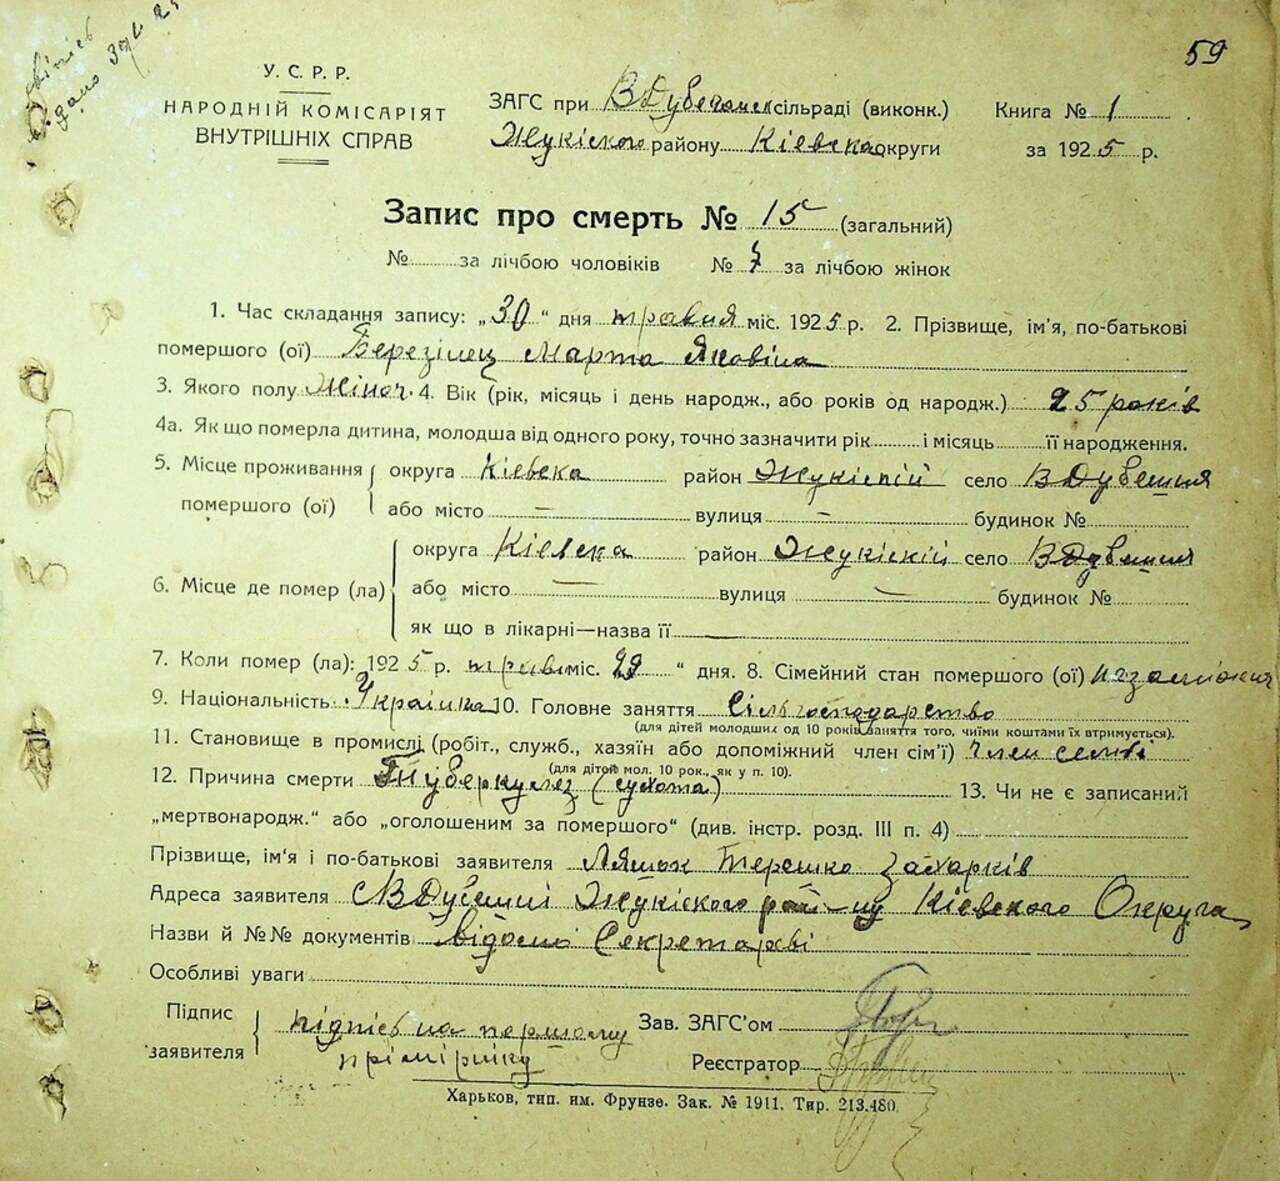 59
У. С. Р. Р.
НАРОДНІЙ КОМІСАРІЯТ
ВНУТРІШНІХ СПРАВ
ЗАГС при В Дубечанск сільраді (виконк.)
Жукіского району Кіевска округи
Книга № 1
за 1925 р.
Запис про смерть № 15 (загальний)
№ за лічбою чоловіків № 7 за лічбою жінок
1. Час складання запису: „30“ дня травня міс. 1925 р. 2. Прізвище, ім'я, по-батькові
помершого (ої) Березінец Марта Яковіна
3. Якого полу Жіноч. 4. Вік (рік, місяць і день народж., або років од народж.) 25 років
4а. Як що померла дитина, молодша від одного року, точно зазначити рік і місяць її народження.
5. Місце проживання помершого (ої) округа Кіевска район Жукіский село В Дубешня
або місто — вулиця — будинок №
6. Місце де помер (ла) округа Кіевска район Жукіскій село В Дубешня
або місто — вулиця — будинок №
як що в лікарні—назва її —
7. Коли помер (ла): 1925 р. трав міс. 29 “ дня. 8. Сімейний стан помершого (ої) незаміжня
9. Національність Українка 10. Головне заняття Сільгосподарство
(для дітей молодших од 10 років заняття того, чиїми коштами їх втримується).
11. Становище в промислі (робіт., служб., хазяїн або допоміжний член сім'ї) Член семї
(для дітей мол. 10 рок., як у п. 10).
12. Причина смерти Туберкулез (сухота) 13. Чи не є записаний
„мертвонародж.“ або „оголошеним за помершого“ (див. інстр. розд. III п. 4)
Прізвище, ім'я і по-батькові заявителя Ляшок Терешко Захарків
Адреса заявителя Жукіского Кіевского Округа
Назви й №№ документів відомі Секретарві
Особливі уваги
Підпис заявителя підпісь на першому
прімірніку
Зав. ЗАГС'ом
Реєстратор
Харьков, тип. им. Фрунзе. Зак. № 1911. Тир. 213.480.